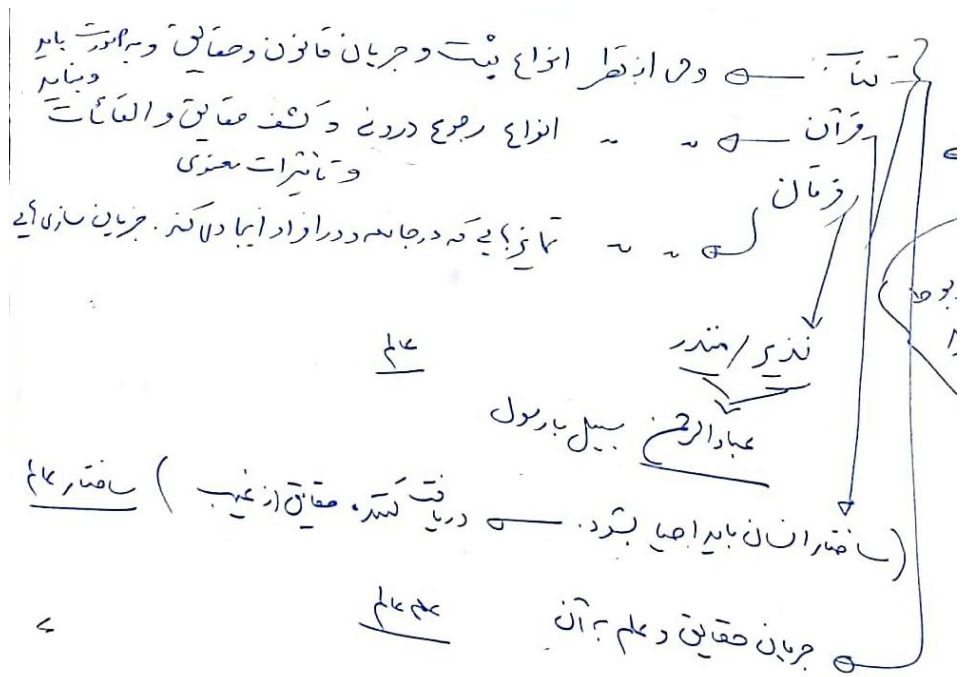 کتاب ← وحی از نظر انواع ثبت و جریان قانون و حقایق و به صورت باید
و نباید
قرآن ← " " انواع رجوع درونی و کشف حقایق و القائات
و تاثیرات معنوی
فرقان
← " " تمایزهایی که در جامعه و در افراد ایجاد می‌کند. جریان سازی‌هایی
نذیر / منذر
عالم
عبادالرحمن سبیل با رسول
(ساختار انسان باید احیا بشود. ← دریافت کننده حقایق از غیب) ساختار عالم
جریان حقایق و علم به آن
علم عالم